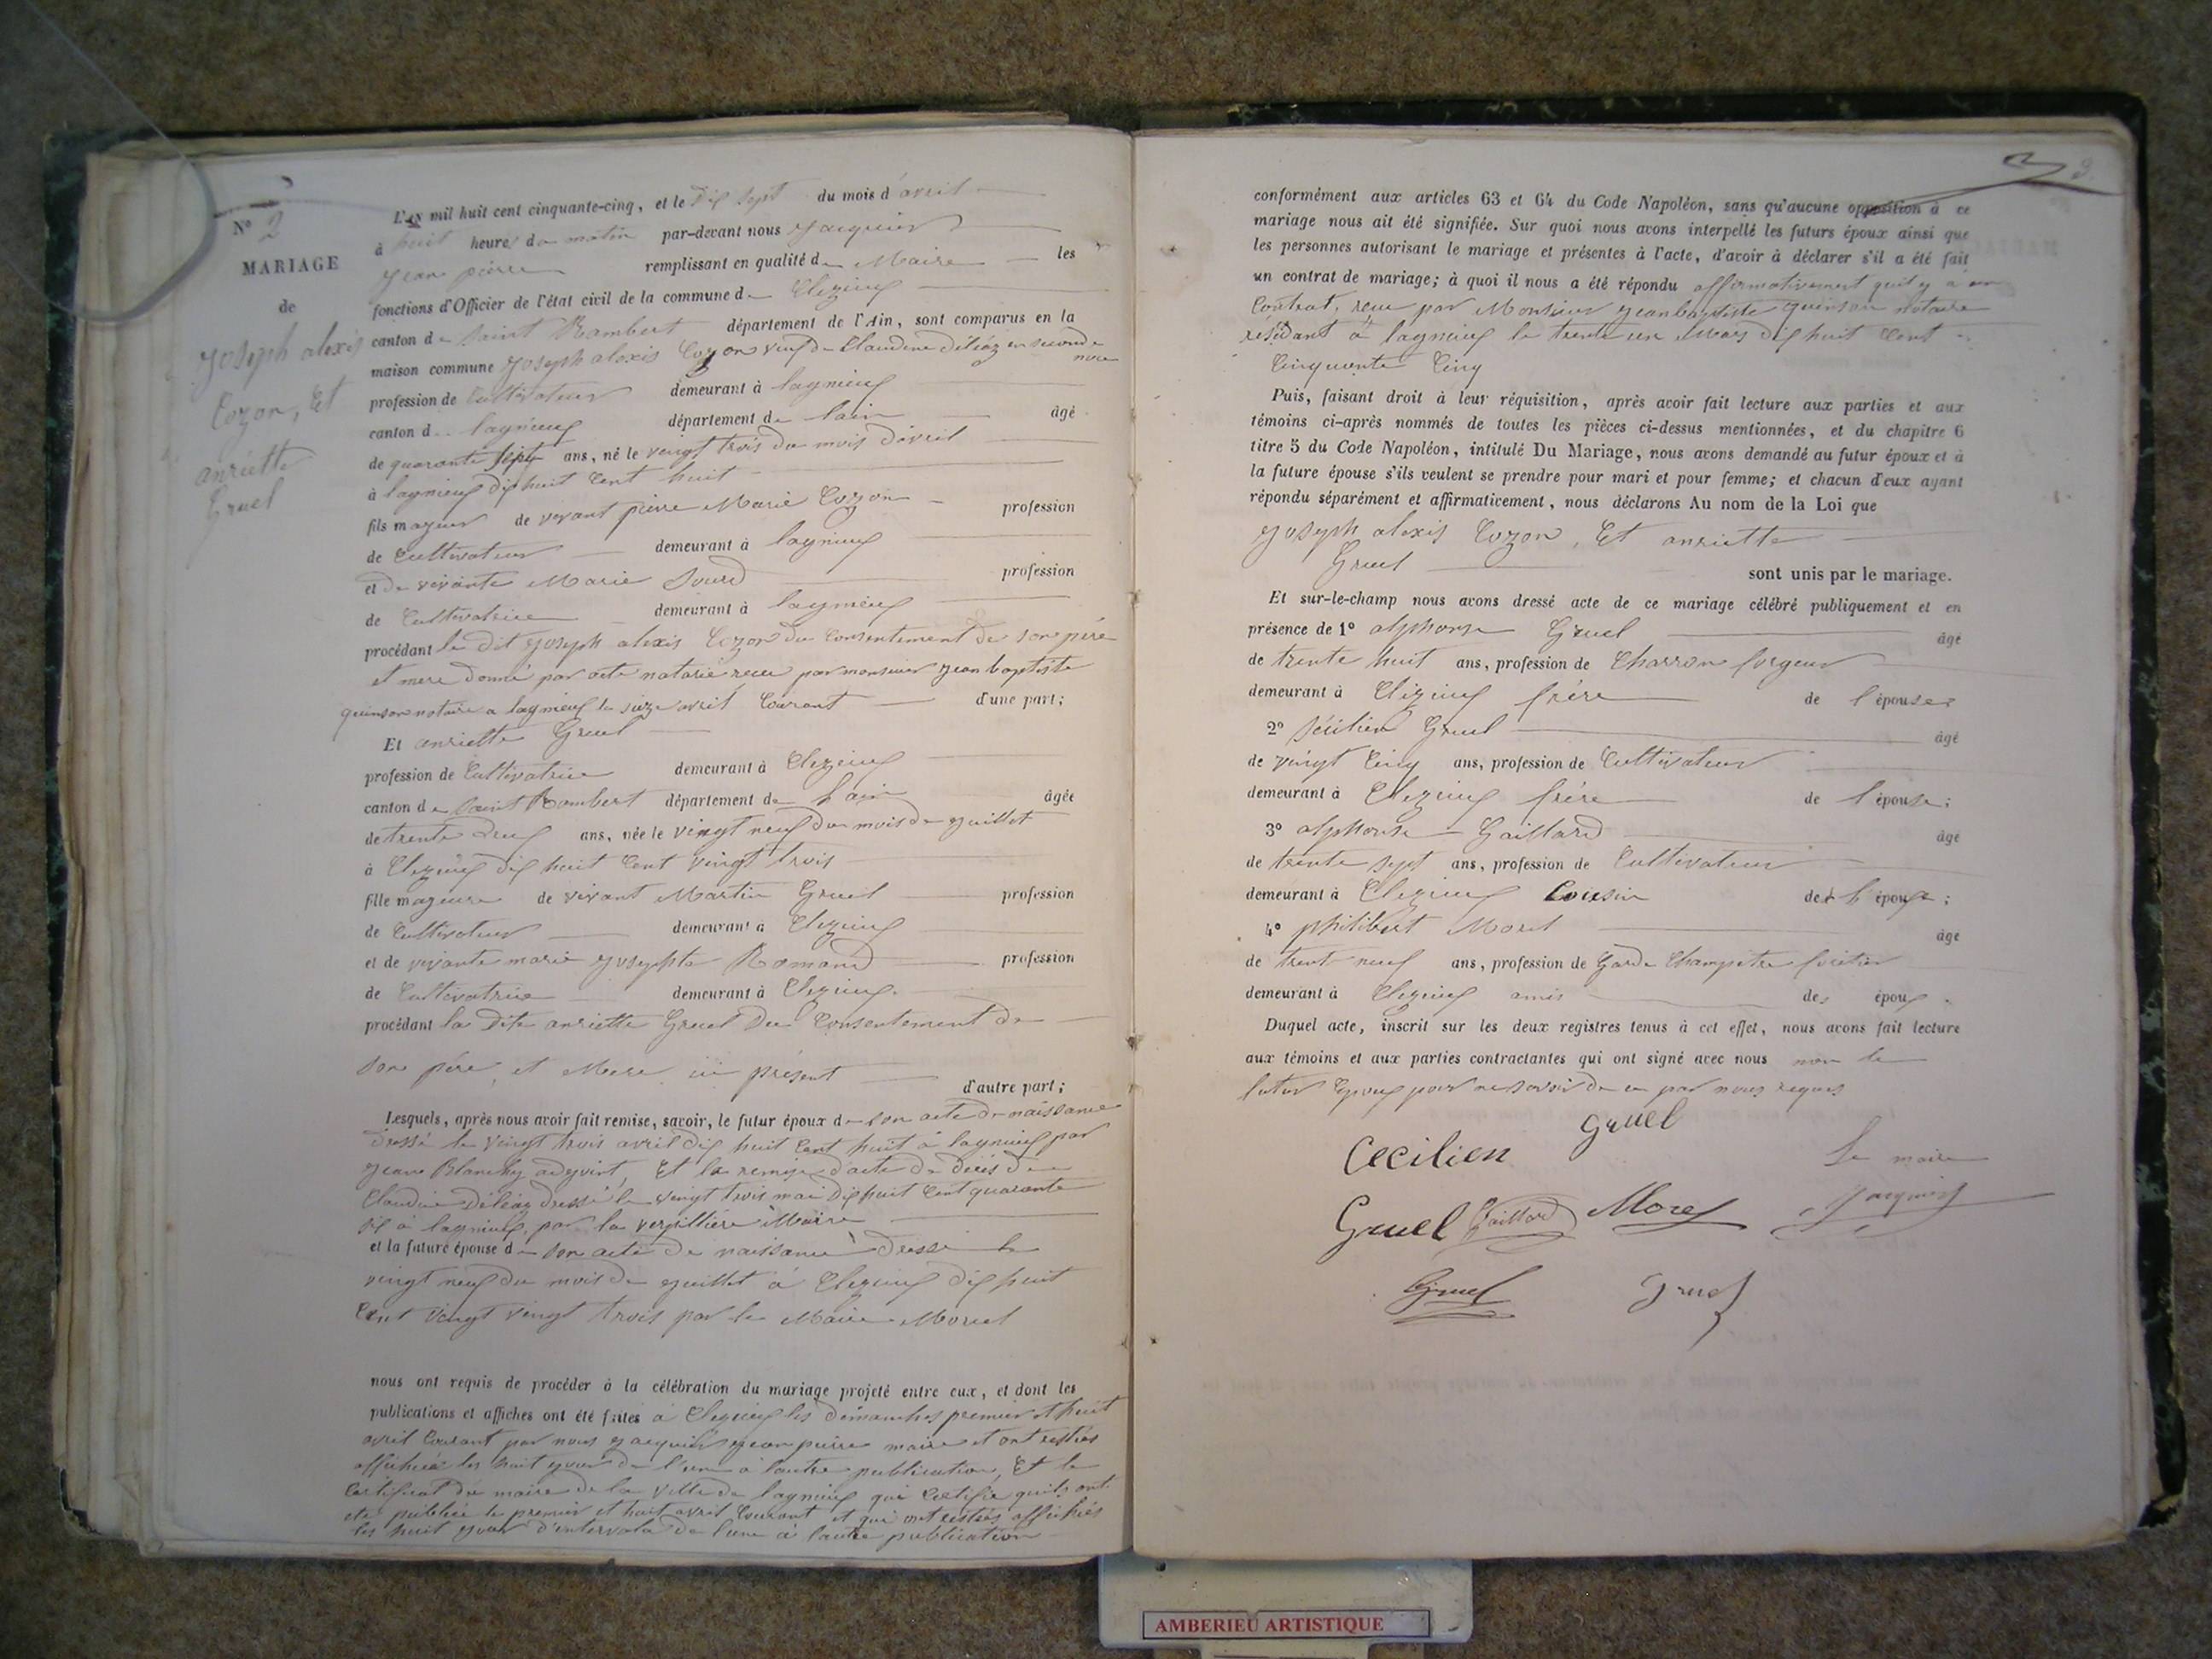 N° 2
MARIAGE
de
Joseph alexis
Cozon, Et
anriette
Gruel
L'An mil huit cent cinquante-cinq, et le dix sept du mois d'avril
à huit heures du matin par-devant nous Jacquin
Jean pierre remplissant en qualité de Maire les
fonctions d'Officier de l'état civil de la commune de Clezieux
canton de saint Rambert département de l'Ain, sont comparus en la
maison commune Joseph alexis Cozon veuf de Claudine déléaz en seconde
noce
profession de Cultivateur demeurant à lagnieux
canton d lagnieux département de lain âgé
de quarante sept ans, né le vingt trois du mois d'avril
à lagnieux dix huit Cent huit
fils mageur de vivant pierre Marie Cozon profession
de Cultivateur demeurant à lagnieux
et de vivante Marie Sourd profession
de Cultivatrice demeurant à lagnieux
procédant le dit Joseph alexis Cozon du Consentement de son père
et mere donné par acte notarié recu par monsieur Jean baptiste
quinson notaire a lagnieux le seize avril Courant d'une part;
Et anriette Gruel
profession de Cultivatrice demeurant à Clezieux
canton de saint Rambert département de l'ain âgée
de trente deux ans, née le vingt neuf du mois de Juillet
à Clezieux dix huit Cent vingt trois
fille mageure de vivant Martin Gruel profession
de Cultivateur demeurant à Clezieux
et de vivante marie Josephte Romand profession
de Cultivatrice demeurant à Clezieux
procédant la dite anriette Gruel du Consentement de
son père, et Mere ici présent
d'autre part;
Lesquels, après nous avoir fait remise, savoir, le futur époux de son acte de naissance
dressé le vingt trois avril dix huit Cent huit à lagnieux par
Jean Blanchy adjoint, Et la remise d'acte de décès de
Claudine Déléaz dressé le vingt trois mai dix huit Cent quarante
six à lagnieux, par la verpillière Maire
et la future épouse de son acte de naissance dressé le
vingt neuf du mois de Juillet à Clezieux dix huit
Cent vingt vingt trois par le Maire Morel
nous ont requis de procéder à la célébration du mariage projeté entre eux, et dont les
publications et affiches ont été faites à Clezieux les dimanches premier et huit
avril Courant par nous Jacquin Jean pierre maire et ont restées
affichées les huit jour de l'une à l'autre publication, Et le
Certificat du maire de la ville de lagnieux qui Certifie quils ont
été publiée le premier et huit avril Courant et qui ont restées affichées
les huit jour d'intervale de lune à lautre publication
3
conformément aux articles 63 et 64 du Code Napoléon, sans qu'aucune opposition à ce
mariage nous ait été signifiée. Sur quoi nous avons interpellé les futurs époux ainsi que
les personnes autorisant le mariage et présentes à l'acte, d'avoir à déclarer s'il a été fait
un contrat de mariage; à quoi il nous a été répondu affirmativement quil y a un
Contrat, recu par Monsieur Jean baptiste quinson notaire
residant à lagnieux le trente un Mars dix huit Cent
Cinquante Cinq
Puis, faisant droit à leur réquisition, après avoir fait lecture aux parties et aux
témoins ci-après nommés de toutes les pièces ci-dessus mentionnées, et du chapitre 6
titre 5 du Code Napoléon, intitulé Du Mariage, nous avons demandé au futur époux et à
la future épouse s'ils veulent se prendre pour mari et pour femme; et chacun d'eux ayant
répondu séparément et affirmativement, nous déclarons Au nom de la Loi que
Joseph alexis Cozon, Et anriette
Gruel sont unis par le mariage.
Et sur-le-champ nous avons dressé acte de ce mariage célébré publiquement et en
présence de 1° alphonse Gruel âgé
de trente huit ans, profession de Charron forgeur
demeurant à Clezieux frére de l'épouse
2° Sécilien Gruel âgé
de vingt Cinq ans, profession de Cultivateur
demeurant à Clezieux frére de l'épouse;
3° alphonse Gaillard âgé
de trente sept ans, profession de Cultivateur
demeurant à Clezieux Cousin de l'épouse;
4° philibert Morel âgé
de trente neuf ans, profession de Garde Champetre forètier
demeurant à Clezieux amis des époux.
Duquel acte, inscrit sur les deux registres tenus à cet effet, nous avons fait lecture
aux témoins et aux parties contractantes qui ont signé avec nous non le
futur Epoux pour ne savoir de ce par nous requis
Cecilien gruel
Le maire
Gruel Gaillard Morel Jacquin
Gruel Gruel
AMBERIEU ARTISTIQUE